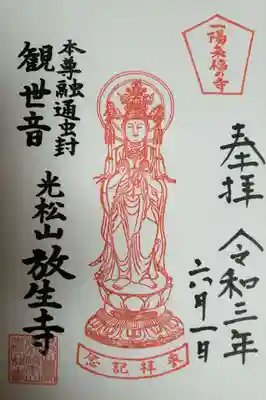 一陽来福の寺
奉拝 令和三年
六月一日
本尊融通虫封
観世音
光松山放生寺
参拝記念